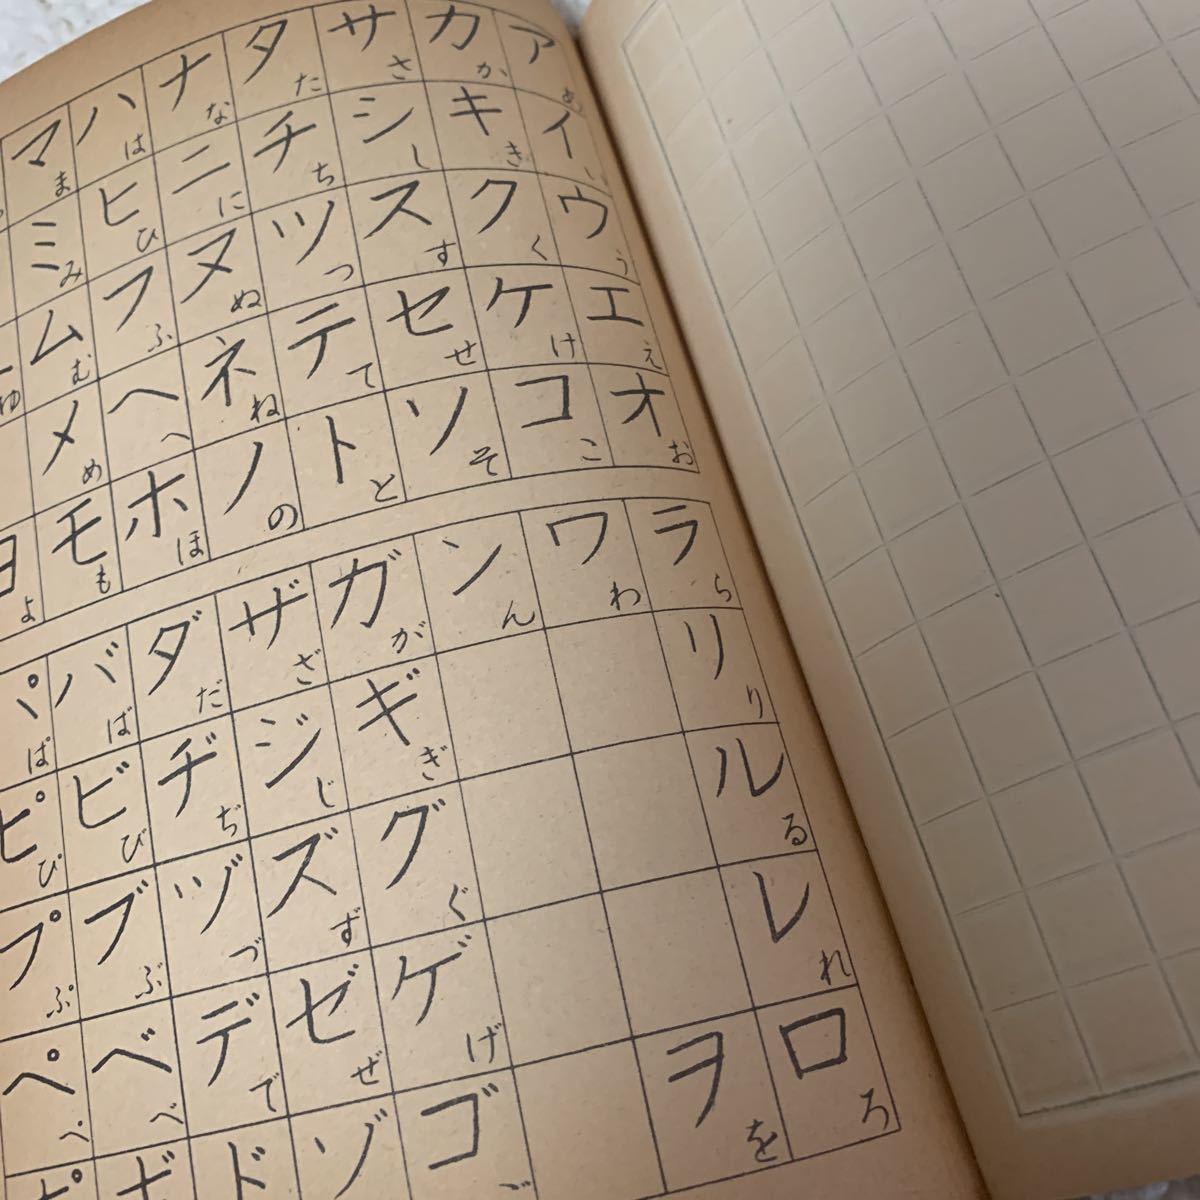 アあ イい ウう エえ オお
カか キき クく ケけ コこ
サさ シし スす セせ ソそ
タた チち ツつ テて トと
ナな ニに ヌぬ ネね ノの
ハは ヒひ フふ ヘへ ホほ
マま ミみ ムむ メめ モも
ゆ ヨよ
ラら リり ルる レれ ロろ
ワわ ヲを
ンん
ガが ギぎ グぐ ゲげ ゴご
ザざ ジじ ズず ゼぜ ゾ
ダだ ヂぢ ヅづ デで ド
バば ビび ブぶ ベべ ボ
パぱ ピぴ プぷ ペぺ ポ